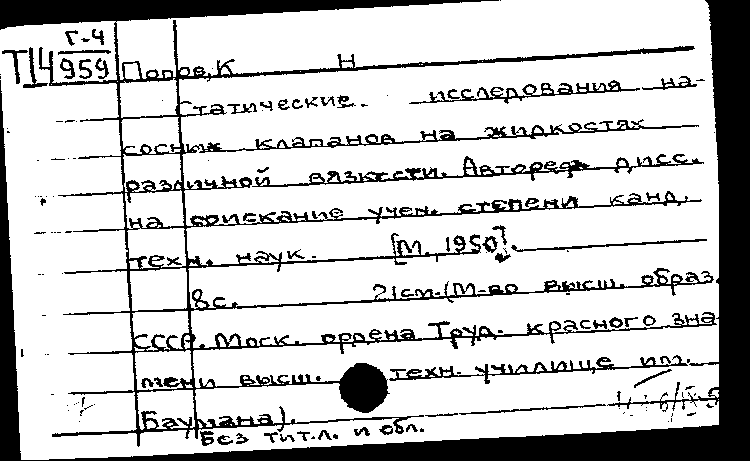 Г-4
Т14 959
Попов, К Н
Статические исследования на-
сосных клапанов на жидкостях
различной вязкости. Автореф. дисс.
на соискание учен. степени канд.
техн. наук. [М., 1950].
8 с. 21 см. (М-во высш. образ.
СССР. Моск. ордена Труд. красного зна-
мени высш. техн. училище им.
Баумана).
Без тит. л. и обл.